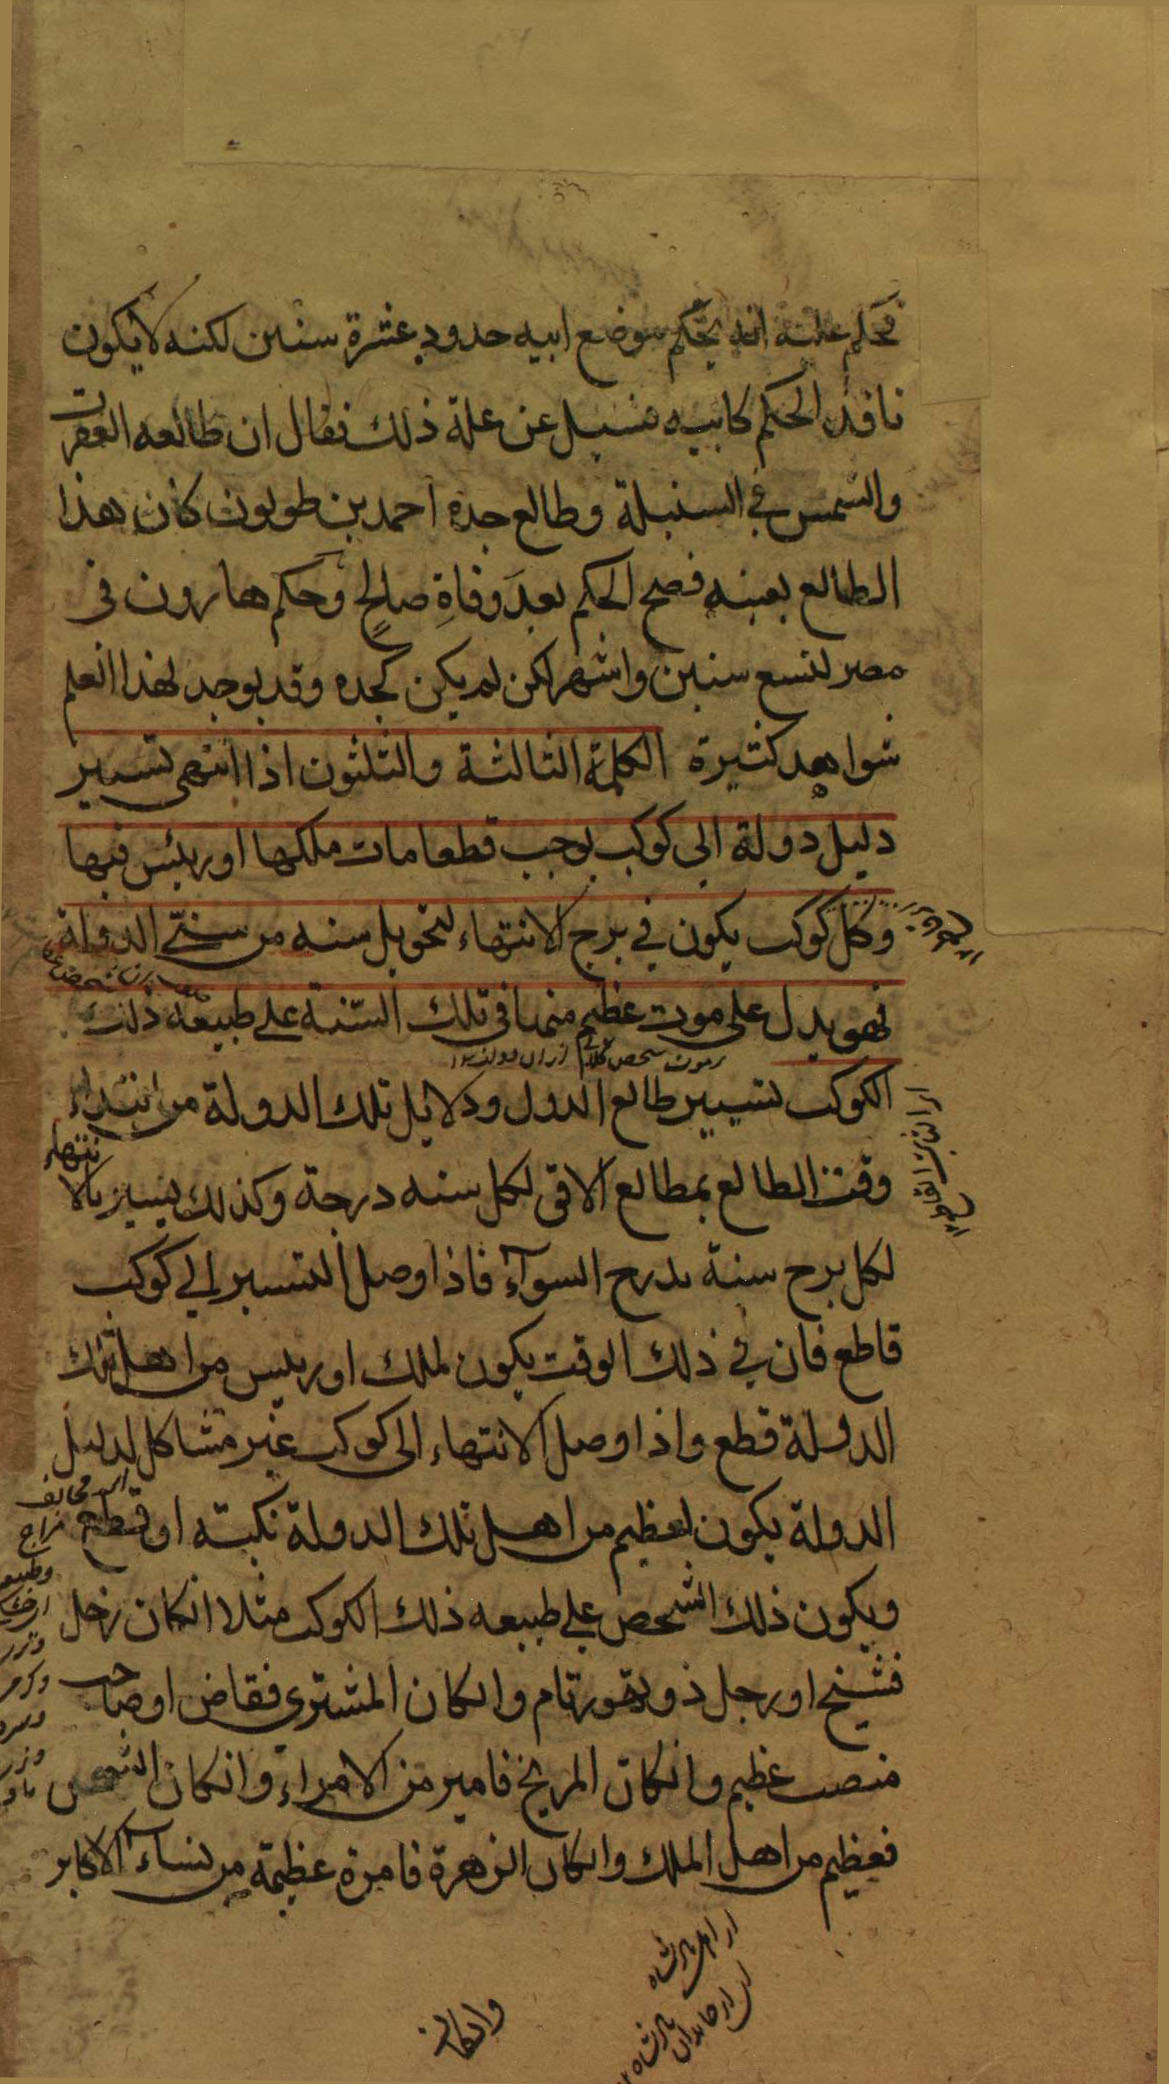 فحكم عليه انه يحكم موضع ابيه حدود عشرة سنين لكنه لا يكون
نافذ الحكم كابيه فسيل عن علة ذلك فقال ان طالعه العقرب
والشمس في السنبلة وطالع جده احمد بن طولون كان هذا
الطالع بعينه فصح الحكم بعد وفاة صالح وحكم هارون في
مصر لتسع سنين واشهر لكن لم يكن كجده وقد يوجد لهذا العلم
شواهد كثيرة الكلمة الثالثة والثلثون اذا انتهى تسيير
دليل دولة الى كوكب يوجب قطعا مات ملكها او رئيس فيها
وكل كوكب يكون في برج الانتهاء لتحويل سنه من سنتي الدولة
فهو يدل على موت عظيم منها في تلك السنة على طبيعة ذلك
الكوكب تسيير طالع الدول ودلايل تلك الدولة من ابتداء
وقت الطالع بمطالع الافق لكل سنه درجة وكذلك يسير بالانتهاء
لكل برج سنة بدرج السوآء فاذا وصل التسيير الي كوكب
قاطع فان في ذلك الوقت يكون لملك او رييس من اهل تلك
الدولة قطع واذا وصل الانتهاء الى كوكب غير مشاكل لدليل
الدولة يكون لعظيم من اهل تلك الدولة نكبته او قطع
ويكون ذلك الشخص علي طبيعه ذلك الكوكب مثلا انكان زحل
فشيخ او رجل ذو تهور تام وانكان المشتري فقاض او صاحب
منصب عظيم وانكان المريخ فامير من الامراء وانكان الشمس
فعظيم من اهل الملك وانكان الزهرة فامرة عظيمة من نسآء الاكابر
وانكان